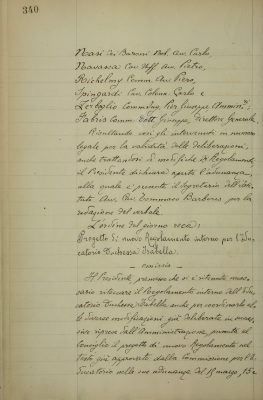 340
Masi dei Baroni Nob. Avv. Carlo,
Navassa Cav. Uff. Avv. Pietro,
Richelmy Comm. Avv. Piero,
Spingardi Cav. Colonn. Carlo e
Comm. Ing. Pier Giuseppe Amminis.
Fabris Comm. Dott. Giuseppe, Direttore Generale.
Risultando così gli intervenuti in numero
legale per la validità delle deliberazioni,
anche trattandosi di modifiche di Regolamenti,
il Presidente dichiara aperta l'adunanza,
alla quale è presente il Segretario dell'Isti-
tuto Avv. Cav. Tommaso Barberis per la
redazione del verbale.
L'ordine del giorno reca:
Progetto di nuovo Regolamento interno per l'Edu-
catorio Duchessa Isabella.
omissis
Il Presidente, premesso che si è ritenuto neces-
sario rifondere il Regolamento interno dell'Edu-
catorio Duchessa Isabella, anche per coordinarlo al-
le diverse modificazioni già deliberate in succes-
sive riprese dall'Amministrazione, presenta al
Consiglio il progetto di nuovo Regolamento nel
testo già approvato dalla Commissione per l'E-
ducatorio nelle sue adunanze del 18 marzo, 15 e